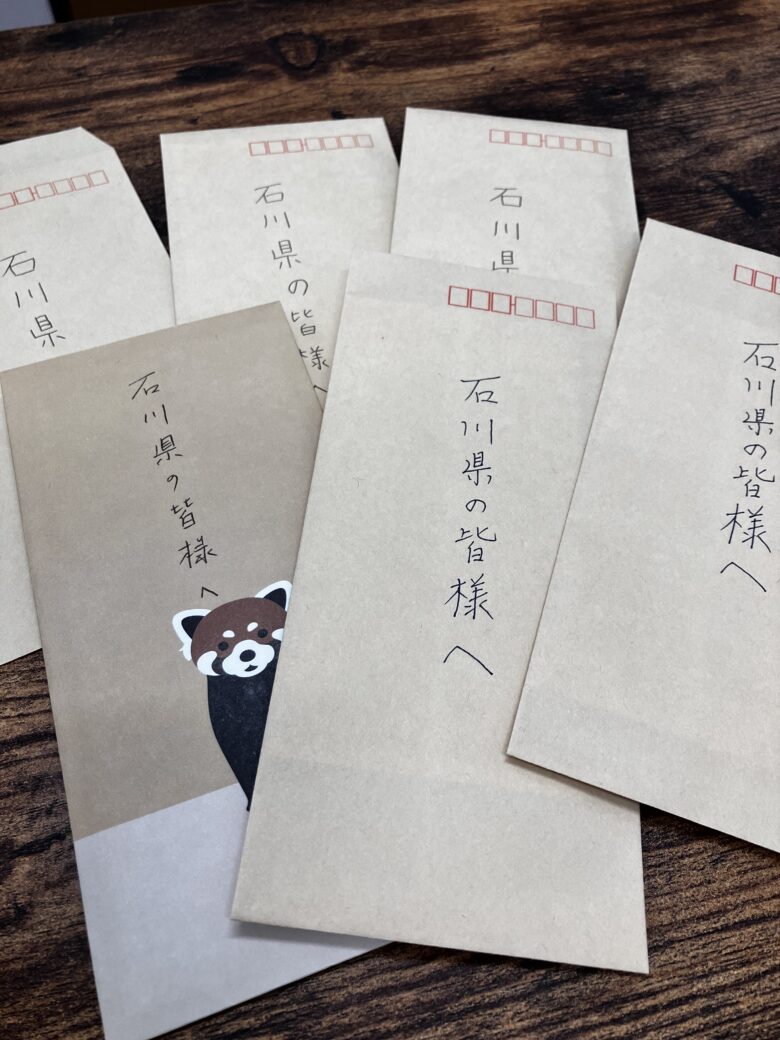 石川県
石川県の皆様へ
石川県
石川県の皆様へ
石川県の皆様へ
石川県の皆様へ